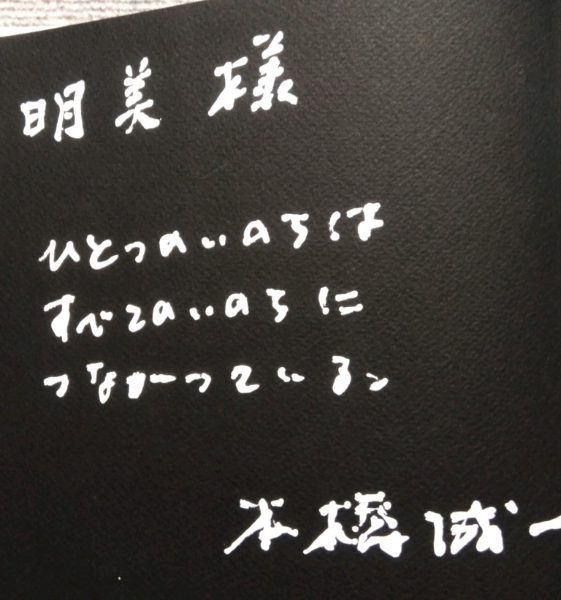 明美様
ひとつのいのちは
すべてのいのちに
つながっている
本橋成一